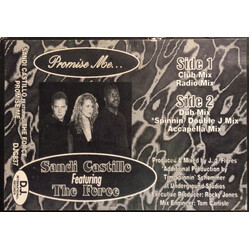 Promise Me...
Side 1
Club Mix
Radio Mix
Side 2
Dub Mix
'Spinnin' Double J Mix
Accapella Mix
Sandi Castillo
Featuring
The Force
Produced & Mixed by J.J. Flores
*Additional Production by
Tim 'Spinnin' Schommer
at Underground Studios
Executive Producer: Rocky Jones
Mix Engineer: Tom Carlisle
SANDI CASTILLO featuring THE FORCE
PROMISE ME...